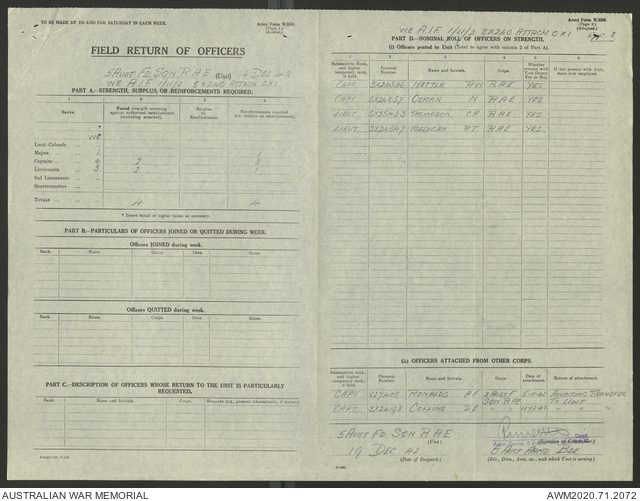 TO BE MADE UP TO AND FOR SATURDAY IN EACH WEEK.
Army Form W.3008.
(Page 1.)
(Adapted.)
FIELD RETURN OF OFFICERS
5 AUST FD. SQN R.A.E. (Unit) 19 DEC 42
WE A.I.F. 1/11/2 8X240 ATTACH CX1
PART A.—STRENGTH, SURPLUS OR REINFORCEMENTS REQUIRED.
1 2 3 4
Ranks. Posted strength counting against authorized establishment (excluding attached). Surplus to Establishment. Reinforcements required (i.e. deficits on establishment).
WE
Lieut.-Colonels
Majors 1
Captains 4 2 2
Lieutenants 2 1
2nd Lieutenants
Quartermasters
TOTALS 4 4
* Insert detail of higher ranks as necessary.
PART B.—PARTICULARS OF OFFICERS JOINED OR QUITTED DURING WEEK.
Officers JOINED during week.
Rank. Name. Corps. Date. From whom received.
Officers QUITTED during week.
Rank. Name. Corps. Date. Cause.
PART C.—DESCRIPTION OF OFFICERS WHOSE RETURN TO THE UNIT IS PARTICULARLY REQUESTED.
Rank. Name and Initials. Corps. Remarks (e.g., present whereabouts, if known).
WE A.I.F. 1/11/2 8X240 ATTACH CX1
Army Form W.3008.
(Page 2.)
(Adapted.)
PART D.—NOMINAL ROLL OF OFFICERS ON STRENGTH.
(i) Officers posted to Unit (Total to agree with column 2 of Part A).
1 2 3 4 5 6
Substantive Rank, and higher temporary rank, if held. Personal Number. Name and Initials. Corps. Whether present with Unit (Answer Yes or No) If not present with Unit, state how employed.
CAPT NETTER H.W. R.A.E. YES
CAPT OSMAN N R.A.E. YES.
LIEUT THOMPSON C.R. R.A.E. YES.
LIEUT R.T. R.A.E. YES.
(ii) OFFICERS ATTACHED FROM OTHER CORPS.
Substantive rank, and higher temporary rank, if held. Personal Number. Name and Initials. Corps. Date of attachment. Nature of attachment.
CAPT VX7405 RONALDS A.F. 2 AUST F 5-11-42 AWAITING TRANSFER
SQN R.A.E. TO UNIT
CAPT COLLINS " " " "
5 AUST FD. SQN R A E
(Unit.) (Signature of Commander.)
19 DEC 42 AUST ARMD BDE
(Date of Despatch.) (Bde., Divn., Area, etc., with which Unit is serving.)
AUSTRALIAN WAR MEMORIAL AWM2020.71.2072